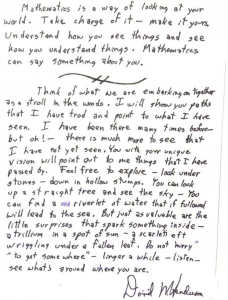 Mathematics is a way of looking at your
world. Take charge of it — make it yours.
Understand how you see things and see
how you understand things. Mathematics
can say something about you.
Think of what we are embarking on together
as a stroll in the woods. I will show you paths
that I have trod and point to what I have
seen. I have been there many times before —
but oh! — there is much more to see that
I have not yet seen. You with your unique
vision will point out to me things that I have
passed by. Feel free to explore — look under
stones — down in hollow stumps. You can look
up a straight tree and see the sky — You
can find a rivulet of water that if followed
will lead to the sea. But just as valuable are the
little surprises that spark something inside —
a trillium in a spot of sun — a scarlet eft
wriggling under a fallen leaf. Do not hurry
"to get somewhere" — linger a while — listen —
see what's around where you are.
David W. Henderson